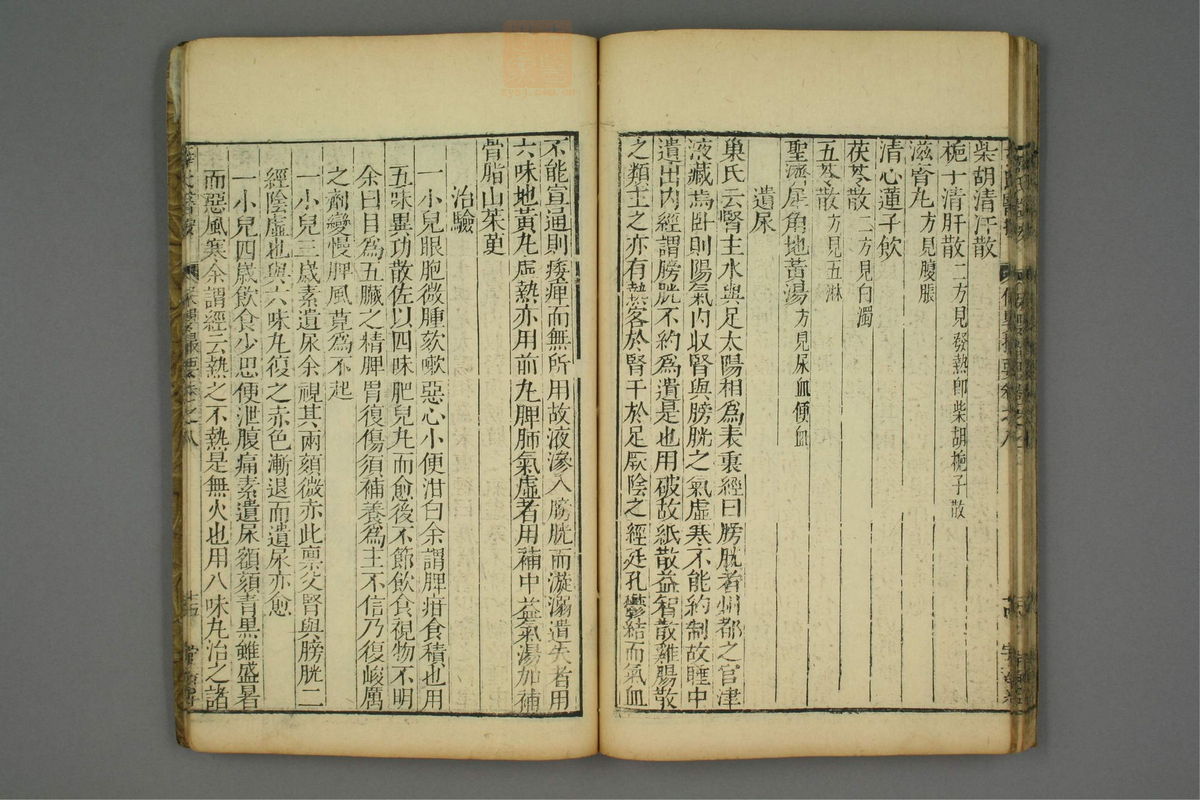 柴胡清肝散
梔子清肝散二方見發熱即柴胡梔子散
滋腎丸方見腹脹
清心蓮子飲
茯苓散二方見白濁
五苓散方見五淋
聖濟犀角地黃湯方見尿血便血
遺尿
巢氏云腎主水與足太陽相為表裏經曰膀胱者州都之官津
液藏焉卧則陽氣內收腎與膀胱之氣虛寒不能約制故睡中
遺出內經謂膀胱不約為遺是也用破故紙散益智散雞腸散
之類主之亦有熱客於腎干於足厥陰之經廷孔鬱結而氣血
不能宣通則痿痺而無所用故液滲入膀胱而漩溺遺失者用
六味地黃丸虛熱亦用前丸脾肺氣虛者用補中益氣湯加補
骨脂山茱萸
治驗
一小兒眼胞微腫欬嗽惡心小便泔白余謂脾疳食積也用
五味異功散佐以四味肥兒丸而愈後不節飲食視物不明
余曰目為五臟之精脾胃復傷須補養為主不信乃復峻厲
之劑變慢脾風竟為不起
一小兒三歲素遺尿余視其兩頰微赤此禀父腎與膀胱二
經陰虛也與六味丸復之赤色漸退而遺尿亦愈
一小兒四歲飲食少思便泄腹痛素遺尿額頰青黑雖盛暑
而惡風寒余謂經云熱之不熱是無火也用八味丸治之諸